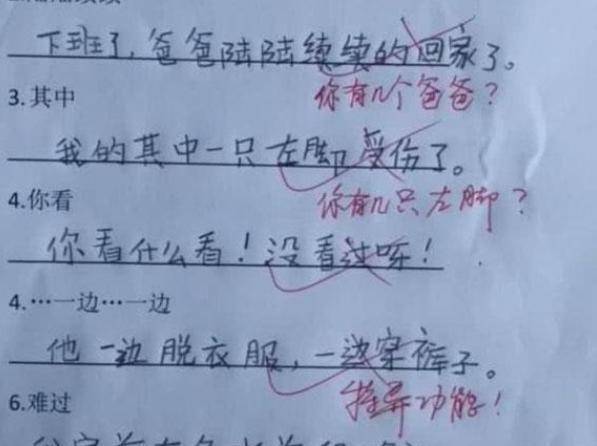 下班了,爸爸陆陆续续的回家了。
你有几个爸爸?
3.其中
我的其中一只左脚受伤了。
你有几只左脚?
4.你看
你看什么看!没看过呀!
4.…一边…一边
他一边脱衣服,一边穿裤子。
特异功能!
6.难过